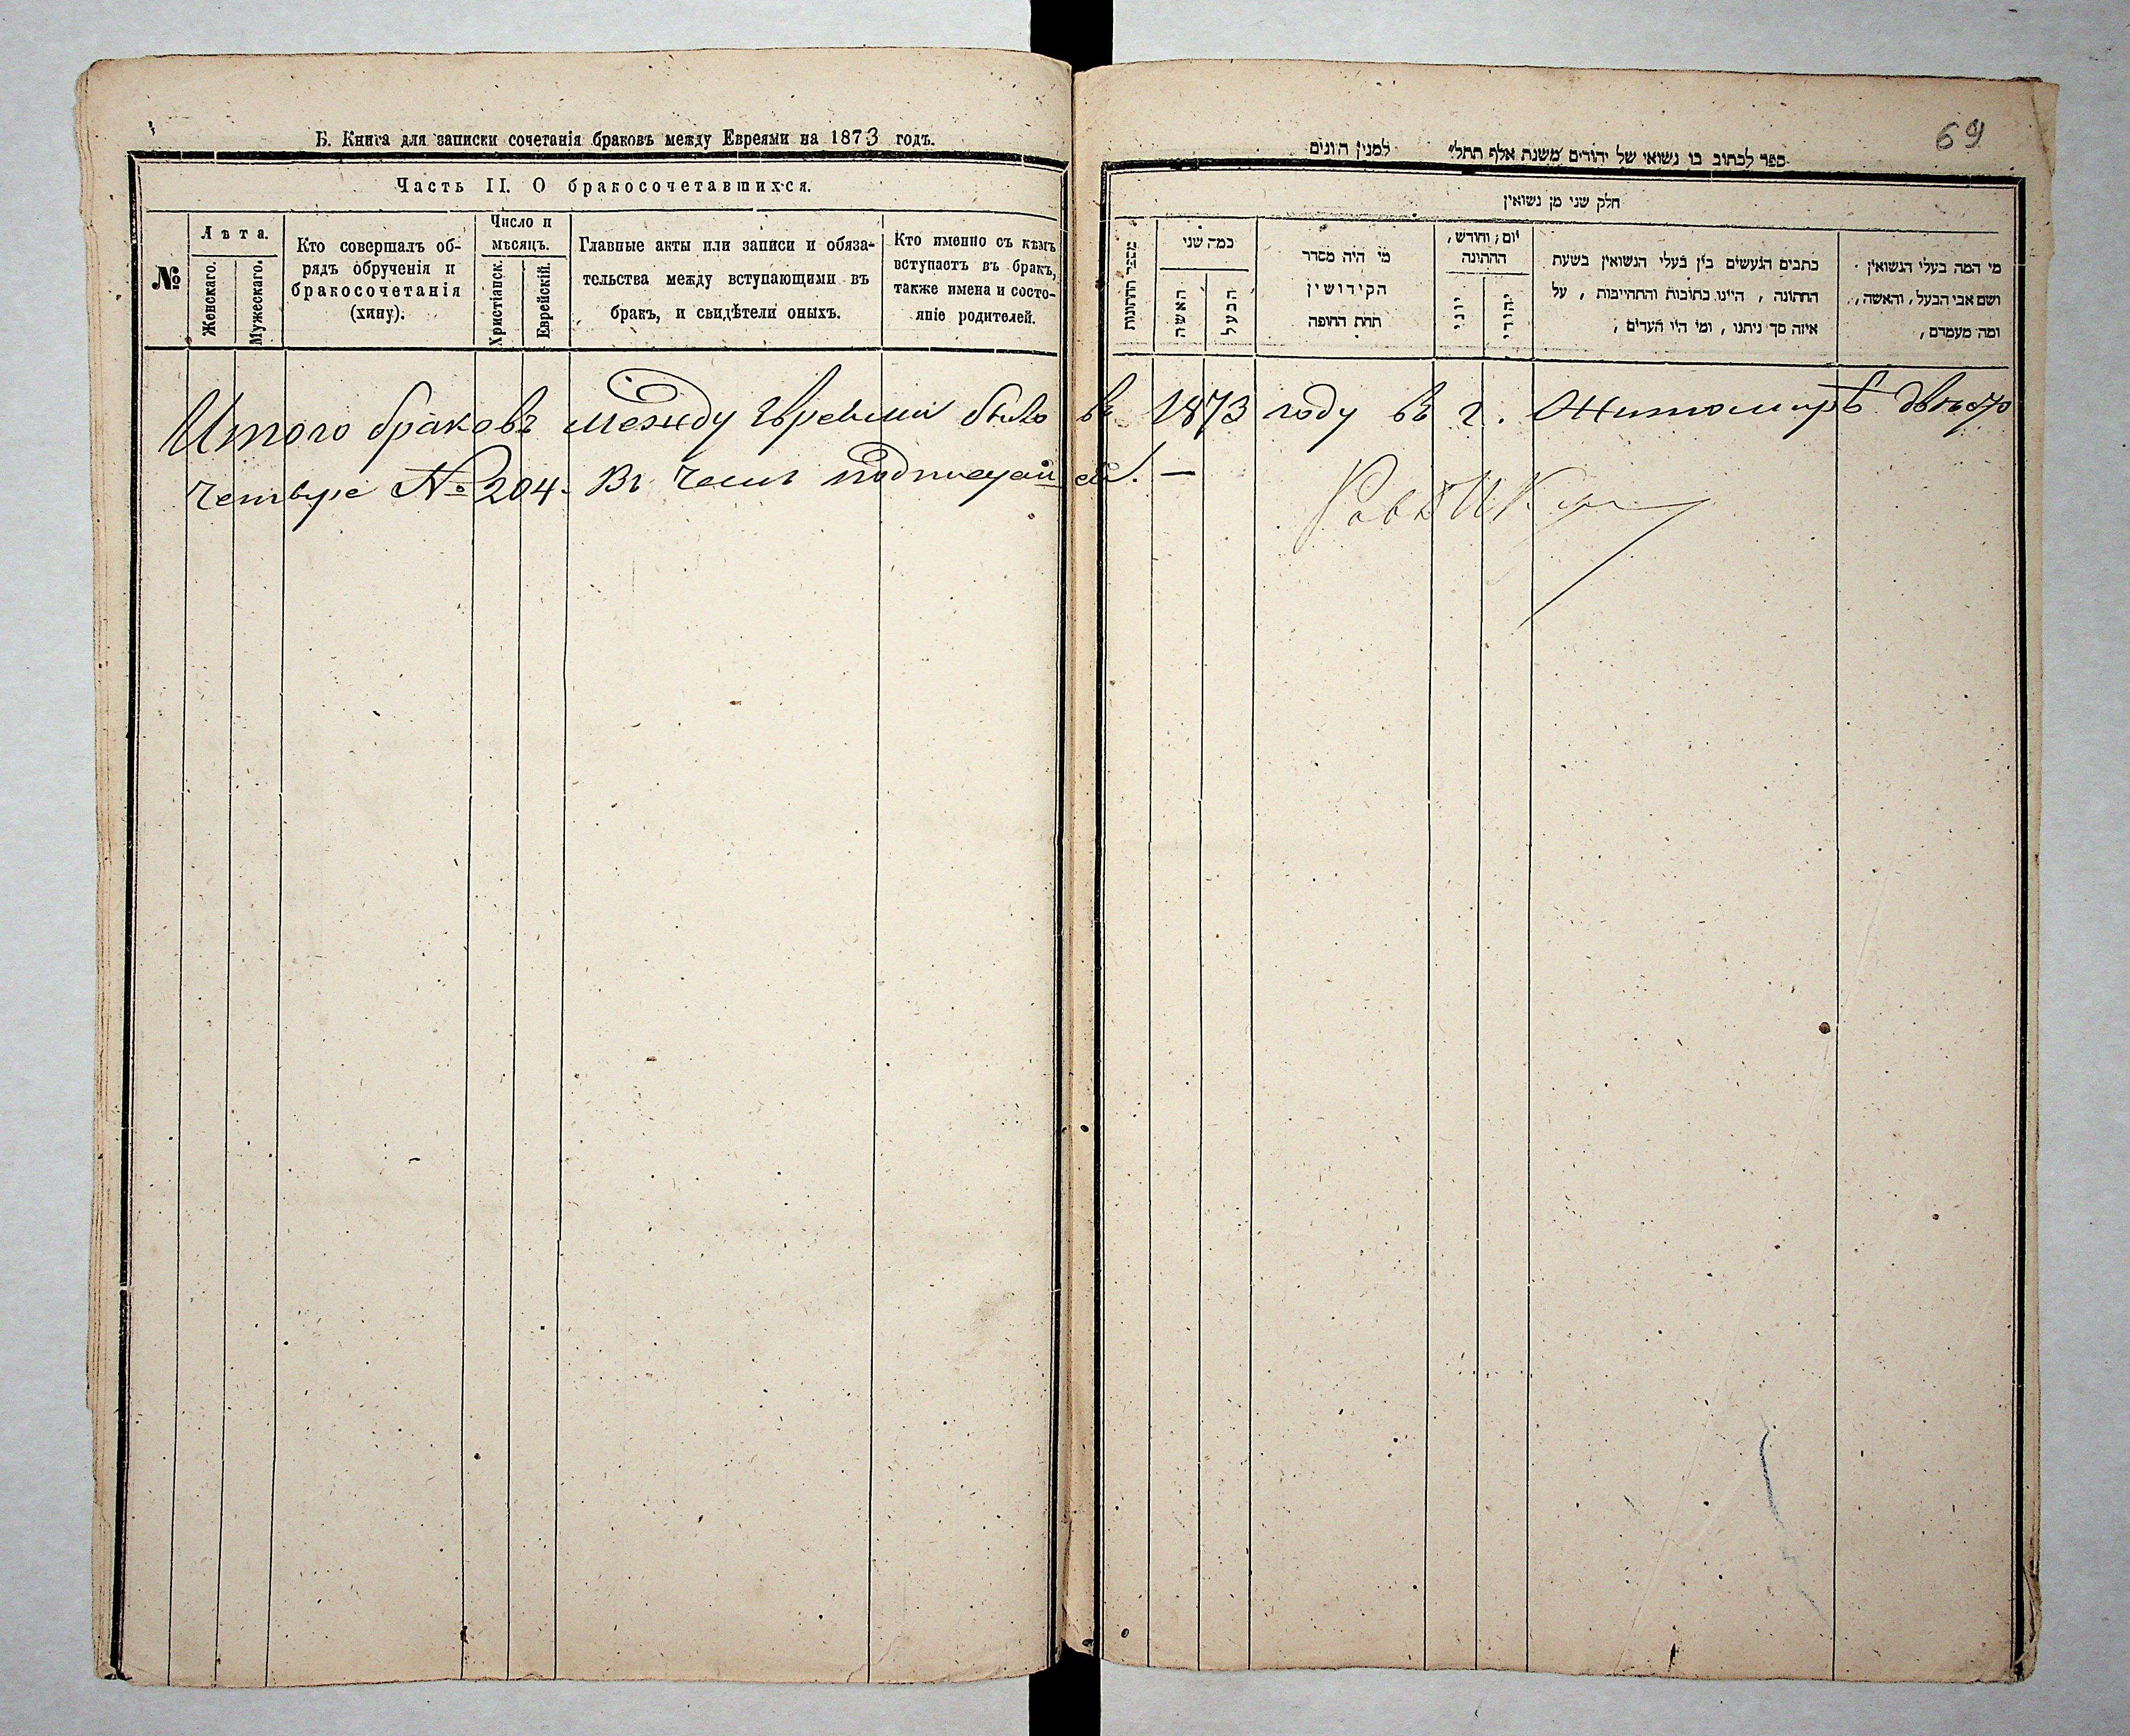 Б. Книга для записки сочетанія браковъ между Евреями на 1873 годъ.
Часть II. О бракосочетавшихся.
№
Лѣта.
Женскаго.
Мужескаго.
Кто совершалъ об-
рядъ обрученія и
бракосочетанія
(хипу).
Число и
мѣсяцъ.
Христіанск.
Еврейскій.
Главные акты или записи и обяза-
тельства между вступающими въ
бракъ, и свидѣтели оныхъ.
Кто именно съ кѣмъ
вступаетъ въ бракъ,
также имена и состо-
яніе родителей.
69
ספר לכתוב בו נשואי של יהודים משנת אלף תתל״ למנין היונים
חלק שני מן נשואין
מספר החתונות
כמה שני
האשה
הבעל
מי היה מסדר
הקידושין
תחת החופה
יום, וחודש,
החתונה
יוני
יהודי
כתבים הנעשים בין בעלי הנשואין בשעת
החתונה, היינו כתובות והתחייבות, על
איזה סך ניתנו, ומי היו העדים,
מי המה בעלי הנשואין
ושם אבי הבעל, והאשה,
ומה מעמדם,
Итого браковъ между Евреями было въ 1873 году въ г. Житомирѣ двѣсти
четыре № 204. Въ чемъ подписуемся. —